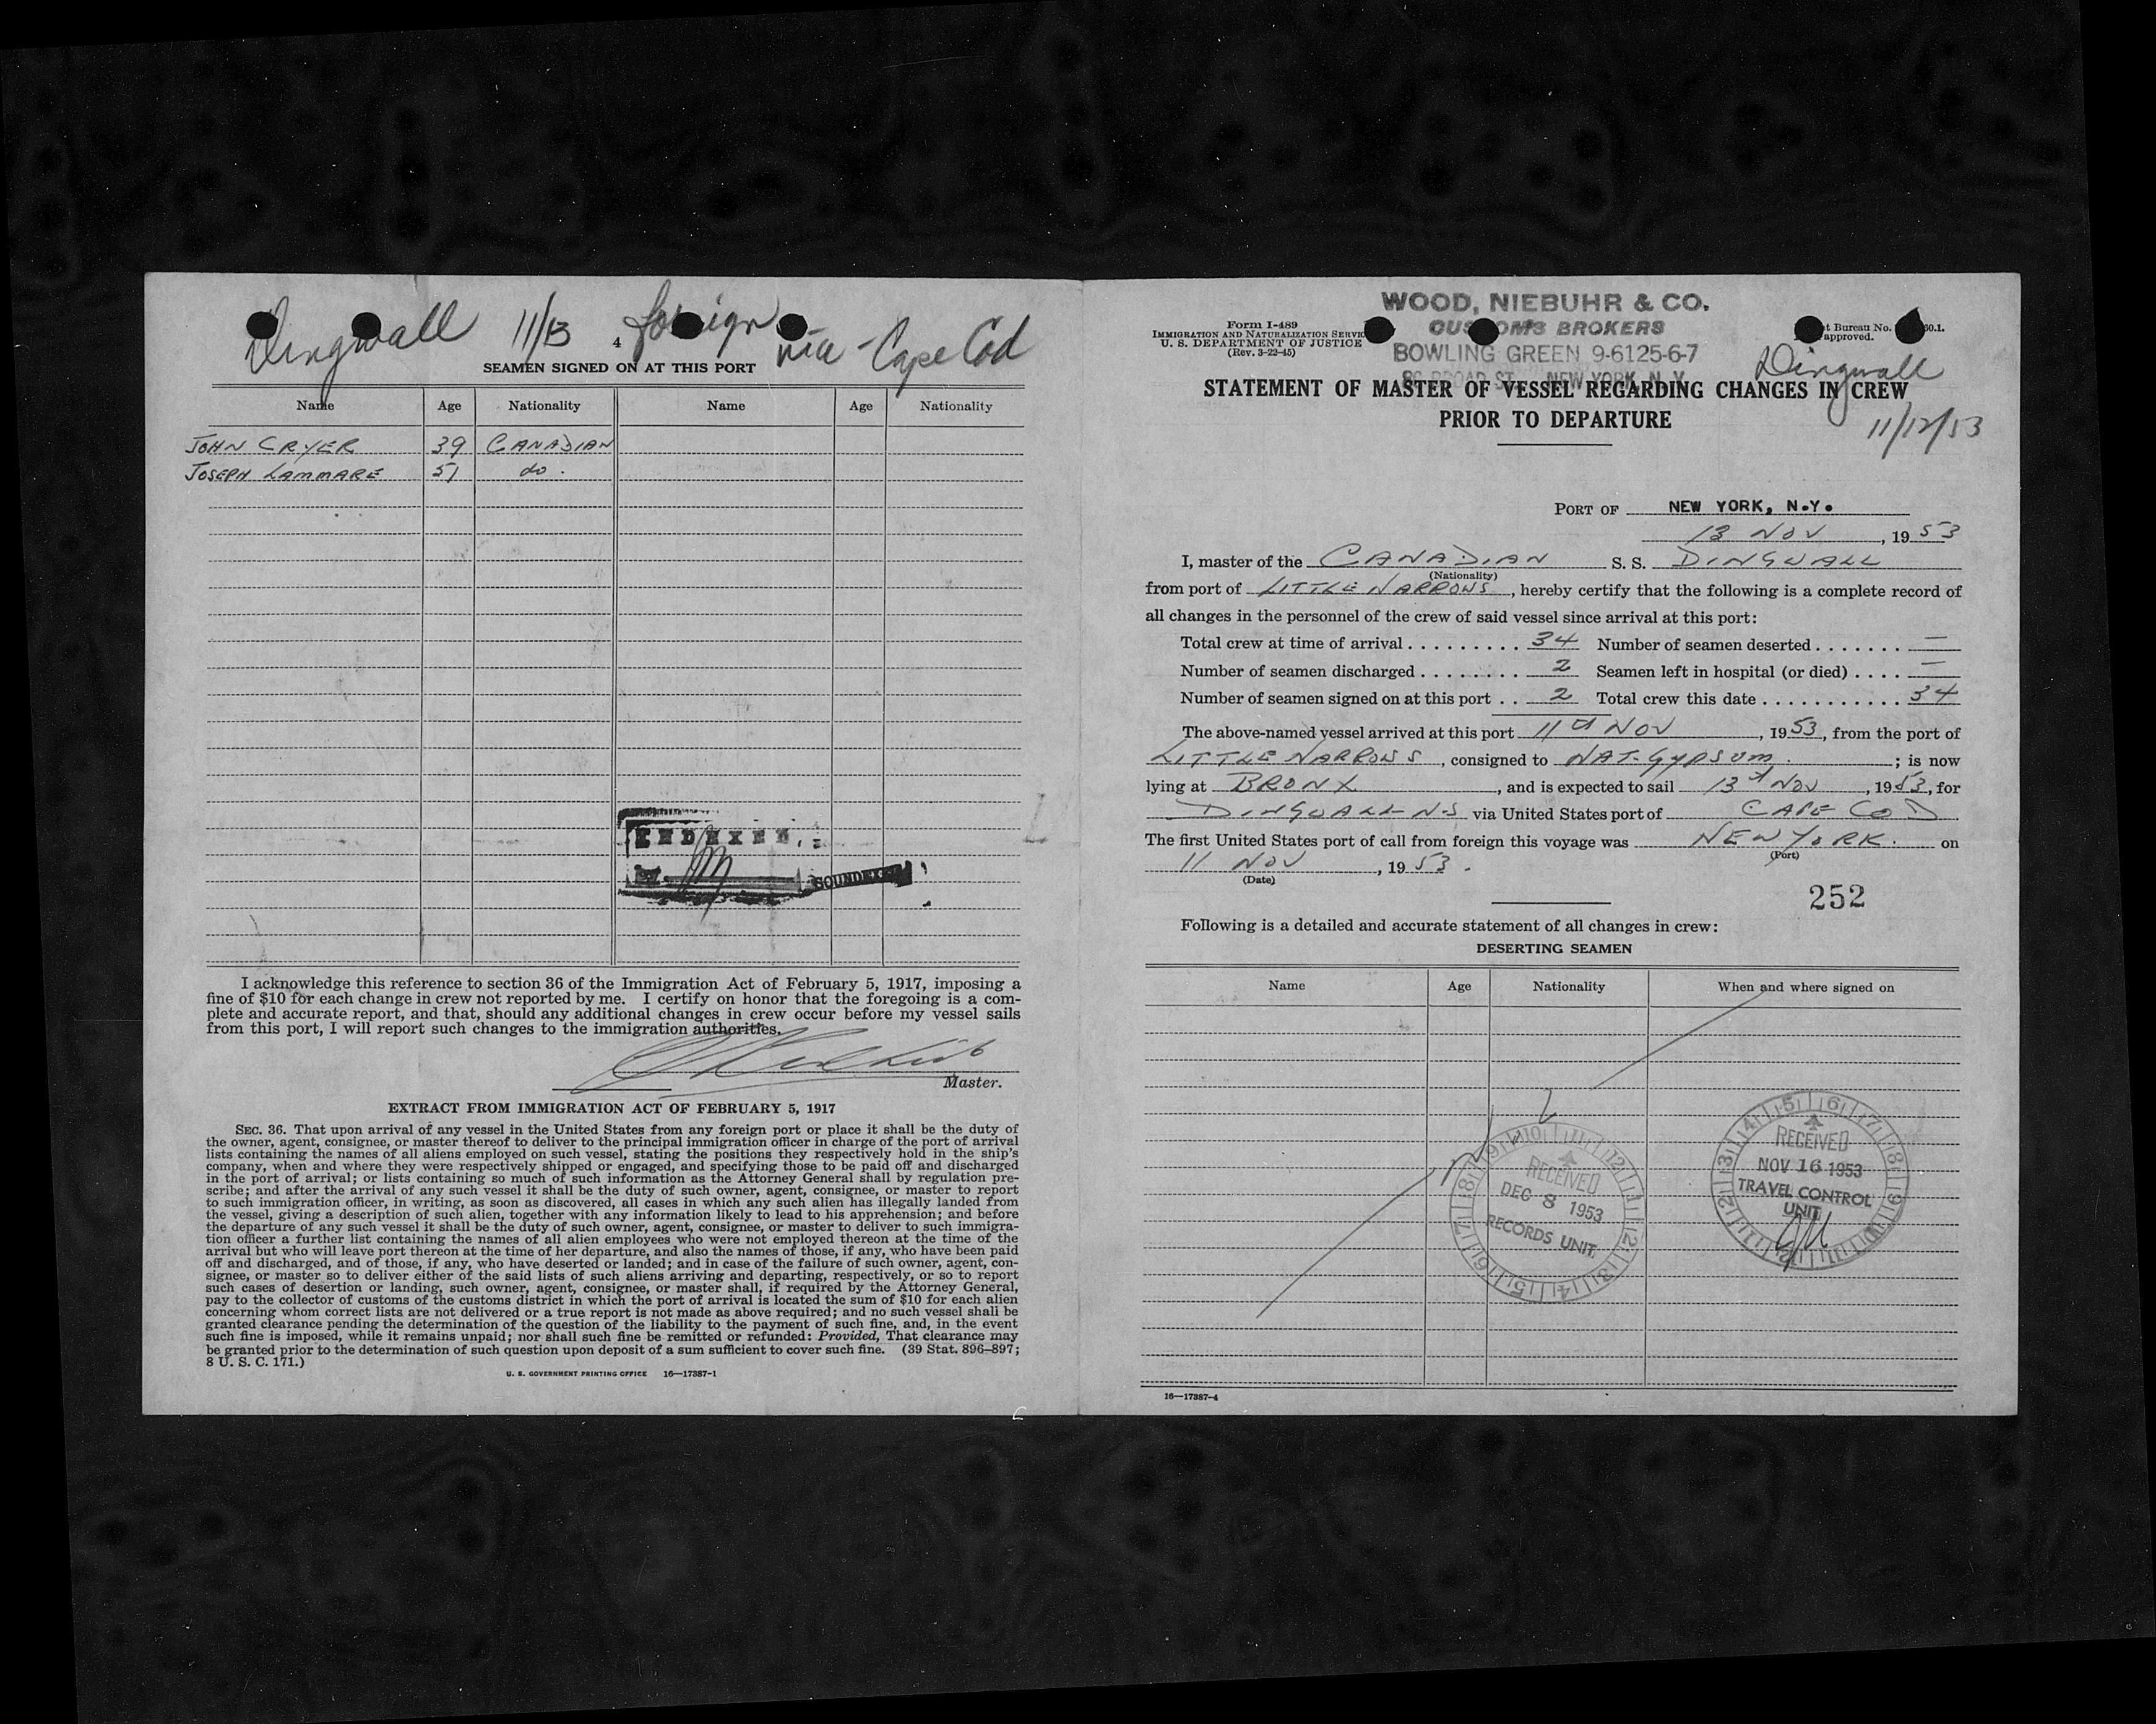 Dingwall 11/13 foreign
via - Cape Cod
4
SEAMEN SIGNED ON AT THIS PORT
Name Age Nationality Name Age Nationality
JOHN CRYER 39 CANADIAN
JOSEPH LAMMARE 51 do.
INDEXED
SOUNDEXED
I acknowledge this reference to section 36 of the Immigration Act of February 5, 1917, imposing a
fine of $10 for each change in crew not reported by me. I certify on honor that the foregoing is a com-
plete and accurate report, and that, should any additional changes in crew occur before my vessel sails
from this port, I will report such changes to the immigration authorities.
Master.
EXTRACT FROM IMMIGRATION ACT OF FEBRUARY 5, 1917
SEC. 36. That upon arrival of any vessel in the United States from any foreign port or place it shall be the duty of
the owner, agent, consignee, or master thereof to deliver to the principal immigration officer in charge of the port of arrival
lists containing the names of all aliens employed on such vessel, stating the positions they respectively hold in the ship's
company, when and where they were respectively shipped or engaged, and specifying those to be paid off and discharged
in the port of arrival; or lists containing so much of such information as the Attorney General shall by regulation pre-
scribe; and after the arrival of any such vessel it shall be the duty of such owner, agent, consignee, or master to report
to such immigration officer, in writing, as soon as discovered, all cases in which any such alien has illegally landed from
the vessel, giving a description of such alien, together with any information likely to lead to his apprehension; and before
the departure of any such vessel it shall be the duty of such owner, agent, consignee, or master to deliver to such immigra-
tion officer a further list containing the names of all alien employees who were not employed thereon at the time of the
arrival but who will leave port thereon at the time of her departure, and also the names of those, if any, who have been paid
off and discharged, and of those, if any, who have deserted or landed; and in case of the failure of such owner, agent, con-
signee, or master so to deliver either of the said lists of such aliens arriving and departing, respectively, or so to report
such cases of desertion or landing, such owner, agent, consignee, or master shall, if required by the Attorney General,
pay to the collector of customs of the customs district in which the port of arrival is located the sum of $10 for each alien
concerning whom correct lists are not delivered or a true report is not made as above required; and no such vessel shall be
granted clearance pending the determination of the question of the liability to the payment of such fine, and, in the event
such fine is imposed, while it remains unpaid; nor shall such fine be remitted or refunded: Provided, That clearance may
be granted prior to the determination of such question upon deposit of a sum sufficient to cover such fine. (39 Stat. 896–897;
8 U. S. C. 171.)
U. S. GOVERNMENT PRINTING OFFICE 16—17387-1
WOOD, NIEBUHR & CO.
CUSTOMS BROKERS
BOWLING GREEN 9-6125-6-7
BROAD ST. NEW YORK, N. Y.
Form I-489
IMMIGRATION AND NATURALIZATION SERVIC
U. S. DEPARTMENT OF JUSTICE
(Rev. 3-22-45)
t Bureau No. 60.1.
approved.
Dingwall
11/12/53
STATEMENT OF MASTER OF VESSEL REGARDING CHANGES IN CREW
PRIOR TO DEPARTURE
PORT OF NEW YORK, N.Y.
13 NOV, 1953
I, master of the CANADIAN S. S. DINGWALL
(Nationality)
from port of LITTLE NARROWS, hereby certify that the following is a complete record of
all changes in the personnel of the crew of said vessel since arrival at this port:
Total crew at time of arrival ......... 34 Number of seamen deserted ....... —
Number of seamen discharged ........ 2 Seamen left in hospital (or died) .... —
Number of seamen signed on at this port .. 2 Total crew this date ........... 34
The above-named vessel arrived at this port 11th NOV, 1953, from the port of
LITTLE NARROWS, consigned to NAT. GYPSUM.; is now
lying at BRONX, and is expected to sail 13th NOV, 1953, for
DINGWALL N.S via United States port of CAPE COD
The first United States port of call from foreign this voyage was NEW YORK. on
(Port)
11 NOV, 1953.
(Date)
252
Following is a detailed and accurate statement of all changes in crew:
DESERTING SEAMEN
Name Age Nationality When and where signed on
RECEIVED
DEC 8 1953
RECORDS UNIT
RECEIVED
NOV 16 1953
TRAVEL CONTROL
UNIT
16—17387-4